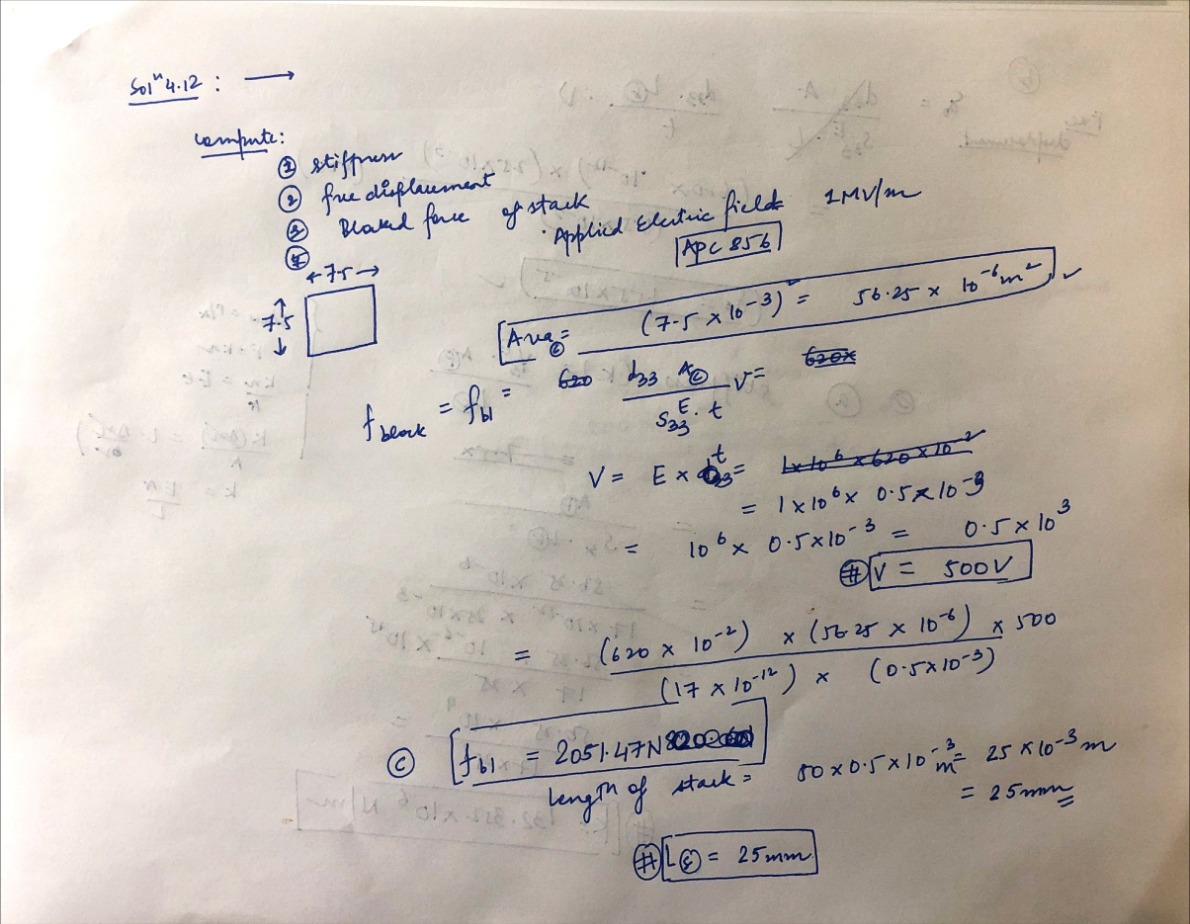 Solⁿ 4.12 : ⟶
compute:
① stiffness
② free displacement
③ Blocked force of stack
④
Applied Electric field: 1MV/m
APC 856
← 7.5 →
7.5
Area_c = (7.5 × 10⁻³) = 56.25 × 10⁻⁶ m² ✓
f_block = f_bl = d₃₃ A_c / (S₃₃^E · t) V =
V = E × t =
= 1 × 10⁶ × 0.5 × 10⁻³
= 10⁶ × 0.5 × 10⁻³ = 0.5 × 10³
# V = 500V
= (620 × 10⁻²) × (56.25 × 10⁻⁶) × 500
(17 × 10⁻¹²) × (0.5 × 10⁻³)
Ⓒ f_bl = 2051.47N
length of stack = 50 × 0.5 × 10⁻³ m = 25 × 10⁻³ m
= 25mm
# L = 25mm